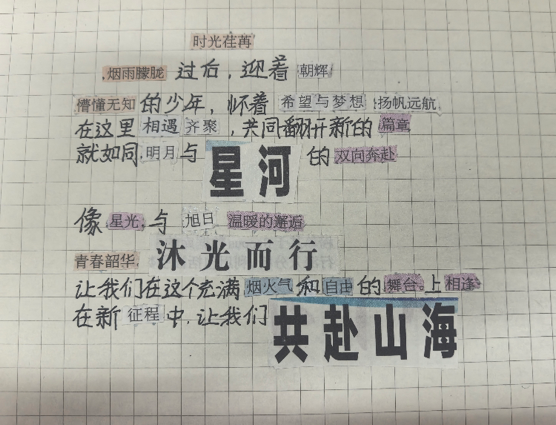 时光荏苒
,烟雨朦胧 过后，迎着 朝辉,
懵懂无知 的少年，怀着 希望与梦想 ,扬帆远航,
在这里 相遇 齐聚，共同翻开新的 篇章,
就如同 明月 与 星河 的 双向奔赴
像 星光, 与 旭日 温暖的邂逅
青春韶华, 沐光而行
让我们在这个充满 烟火气 和 自由 的 舞台 上 相连
在新 征程 中,让我们 共赴山海